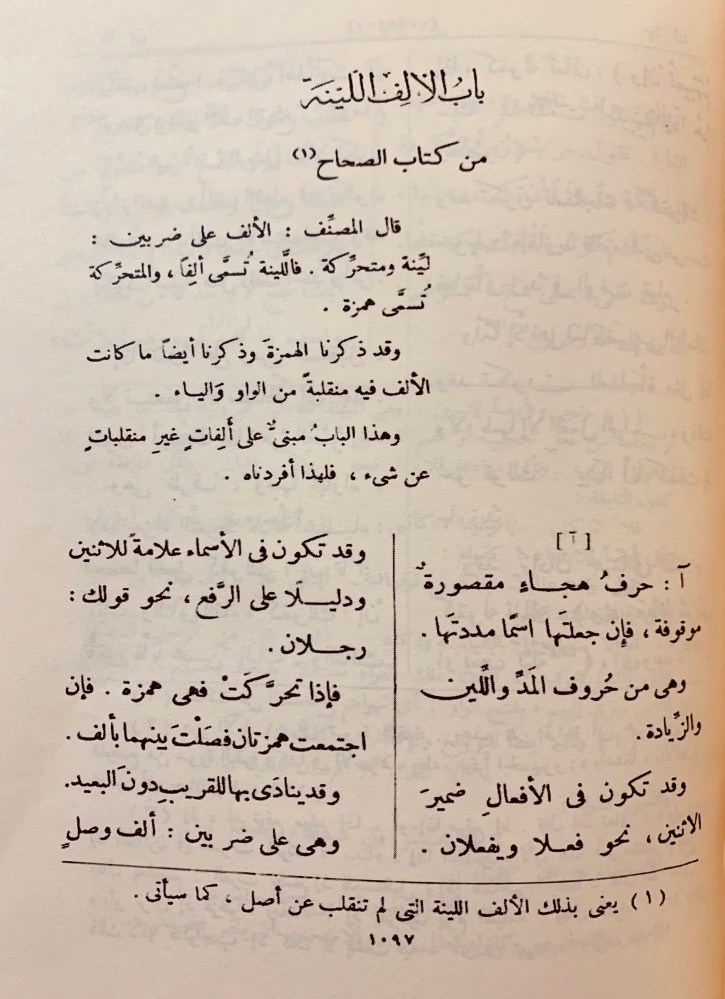 بابُ الألِفِ اللَّيِّنَة
من كتاب الصحاح (١)
قال المصنِّف : الألف على ضربين :
ليِّنة ومتحركة . فاللَّينة تُسمَّى ألِفاً ، والمتحرِّكة
تُسمَّى همزة .
وقد ذكرنا الهمزةَ وذكرنا أيضاً ما كانت
الألف فيه منقلبةً من الواو وَالياء .
وهذا البابُ مبنىٌّ على أَلِفاتٍ غيرِ منقلباتٍ
عن شىء ، فلهذا أفردناه .
[ آ ]
آ : حرفُ هجاءٍ مقصورةٌ
موقوفة ، فإن جعلتَها اسمًا مددتَها .
وهى من حُروف المَدِّ واللَّين
والزِّيادة .
وقد تكون فى الأفعالِ ضميرَ
الاثنين ، نحو فعلا ويفعلان .
وقد تكون فى الأسماء علامةً للاثنين
ودليلًا على الرَّفع ، نحو قولك :
رجلان .
فإذا تحرَّكَتْ فهى همزة . فإن
اجتمعت همزتان فصَلْتَ بينهما بألف .
وقد ينادَى بها للقريبِ دونَ البعيد .
وهى على ضربين : ألف وصلٍ
(١) يعنى بذلك الألف اللينة التى لم تنقلب عن أصل ، كما سيأتى .
١٠٩٧